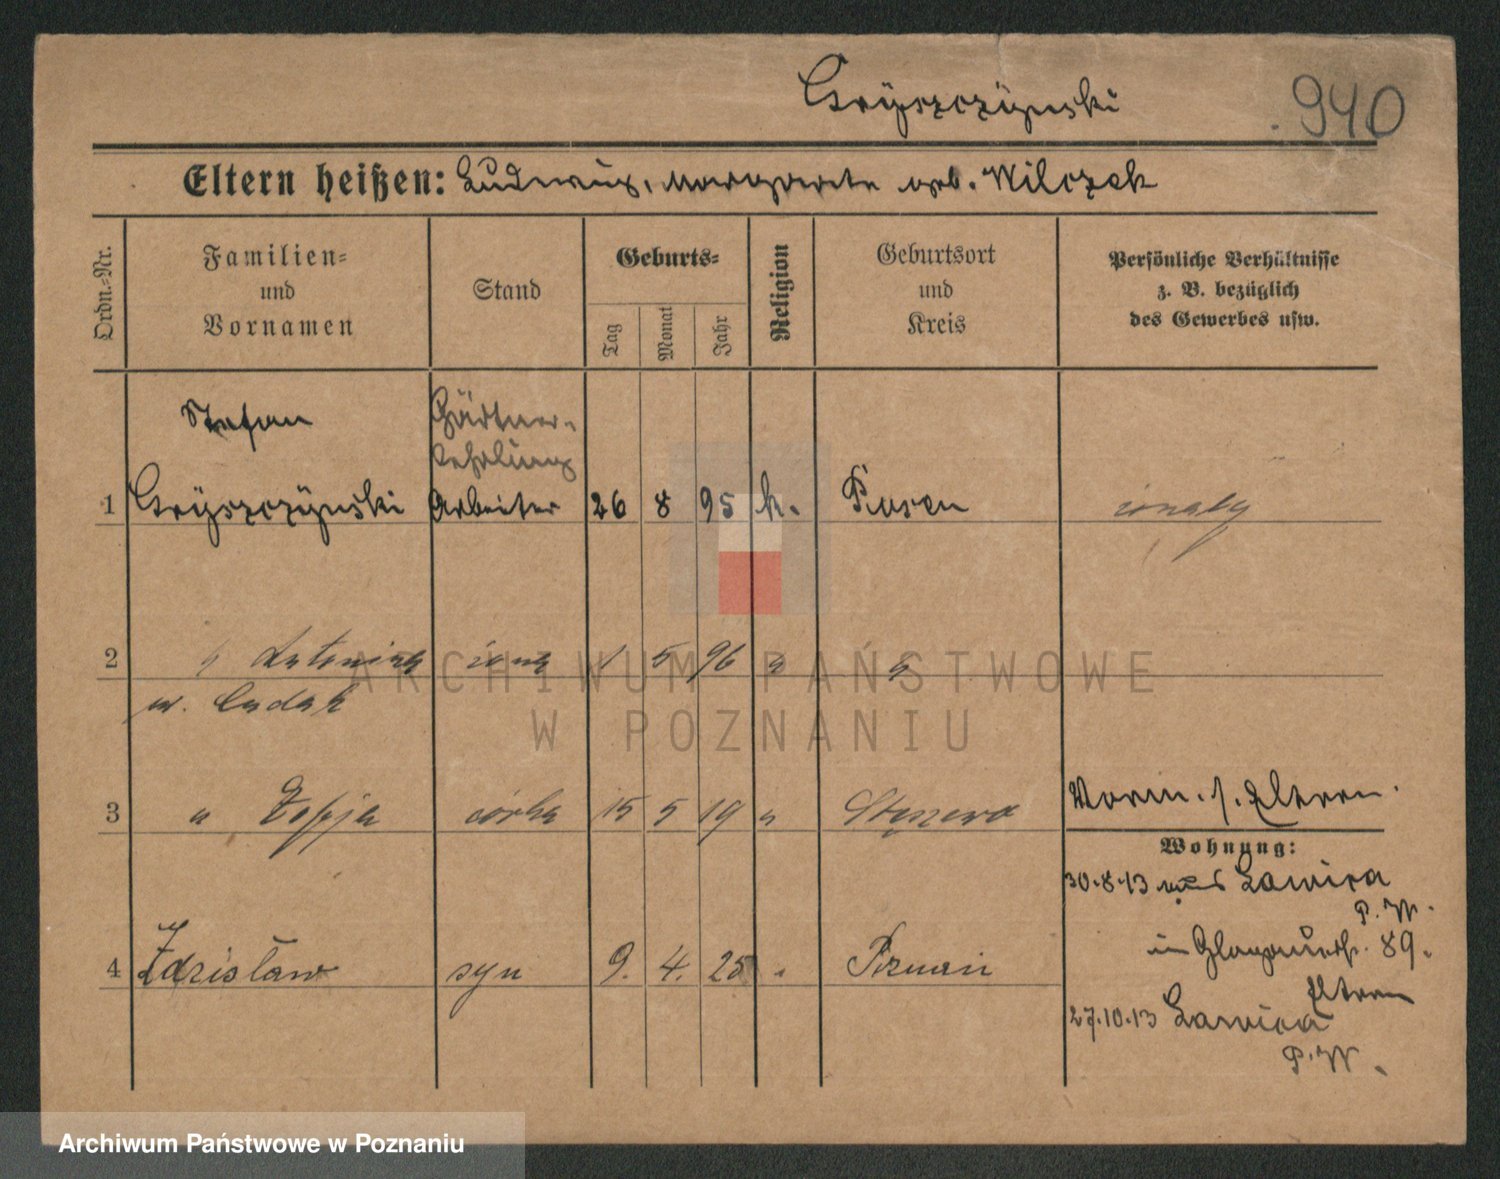 Gryszczyński
940
Eltern heißen: Ludwig, Margarete geb. Wilczak
Ordn.-Nr.
Familien-
und
Vornamen
Stand
Geburts-
Tag
Monat
Jahr
Religion
Geburtsort
und
Kreis
Persönliche Verhältnisse
z. B. bezüglich
des Gewerbes usw.
Stefan
Gärtner-
Lehrling
1 Gryszczyński Arbeiter 26 8 95 k. Posen żonaty
2 " Antonina żona 1 5 96 " "
w. Cudak
3 " Zofja córka 15 5 19 " Stęszewo
Vorm. s. Eltern.
Wohnung:
30.8.13 Lawica
P. W.
in Glogauerstr. 89.
4 Zdzisław syn 9. 4. 25 " Poznań
Eltern
27.10.13 Lawica
P. W.
ARCHIWUM PAŃSTWOWE
W POZNANIU
Archiwum Państwowe w Poznaniu